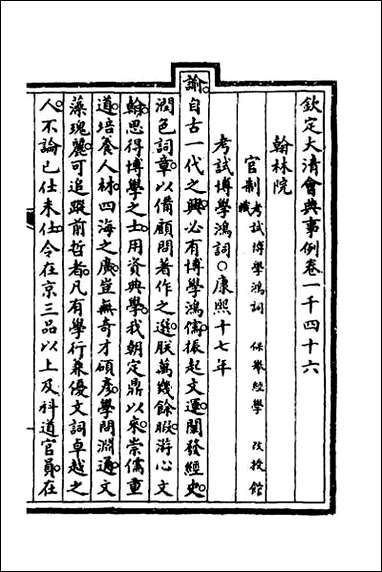 欽定大清會典事例卷一千四十六
翰林院
官制考試博學鴻詞 保舉經學 改授館職
考試博學鴻詞○康熙十七年
諭自古一代之興必有博學鴻儒振起文運闡發經史
潤色詞章以備顧問著作之選朕萬幾餘暇游心文
翰思得博學之士用資典學我朝定鼎以來崇儒重
道培養人材四海之廣豈無奇才碩彥學問淵通文
藻瑰麗可追蹤前哲者凡有學行兼優文詞卓越之
人不論已仕未仕令在京三品以上及科道官員在